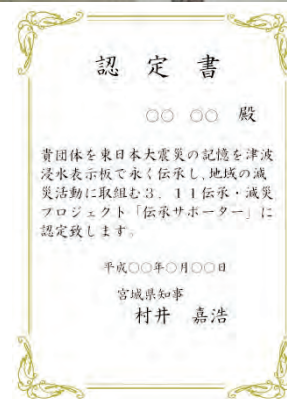 認 定 書
○○ ○○ 殿
貴団体を東日本大震災の記憶を津波
浸水表示板で永く伝承し、地域の減
災活動に取組む3．11伝承・減災
プロジェクト「伝承サポーター」に
認定致します。
平成○○年○月○○日
宮城県知事
村井 嘉浩